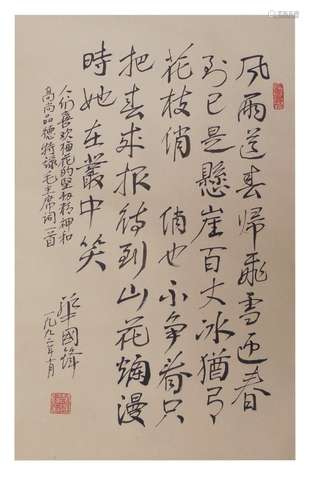 風雨送春歸飛雪迎春
到已是懸崖百丈冰猶有
花枝俏 俏也不争春只
把春来报待到山花爛漫
時她在叢中笑
人们喜欢梅花的坚韧精神和
高尚品德特録毛主席词一首
華國鋒
一九九二年十月